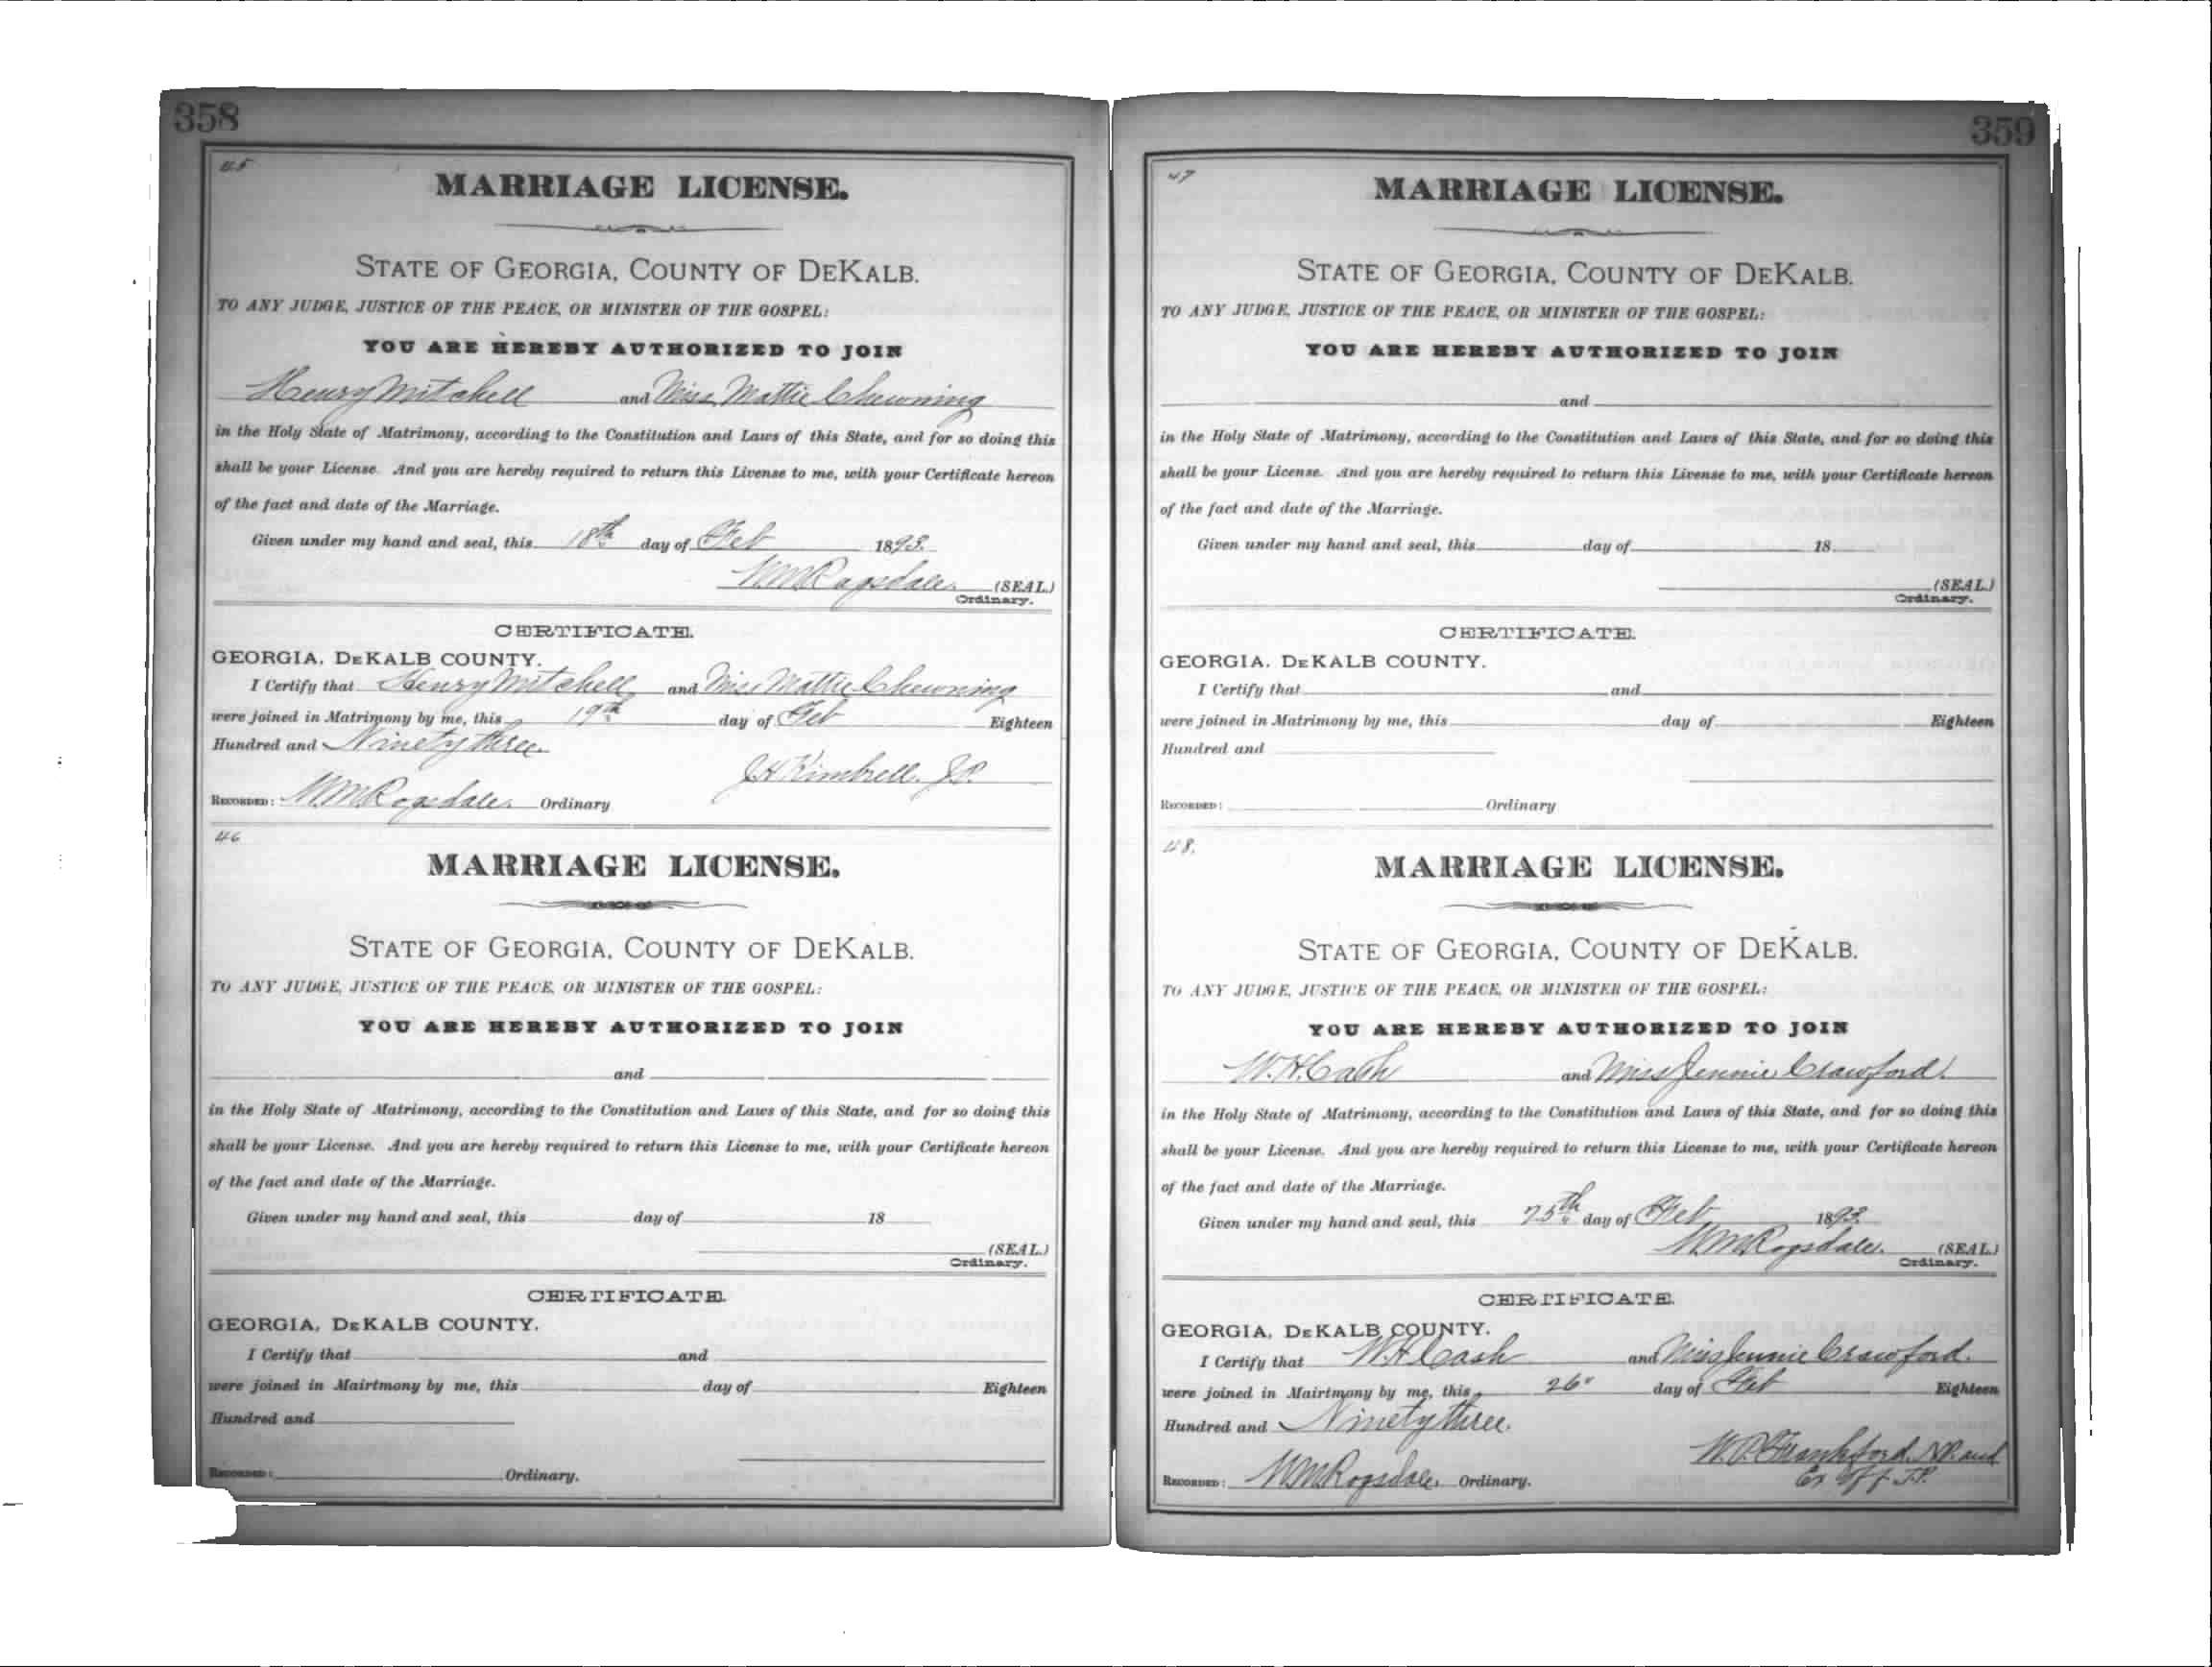 358
45
MARRIAGE LICENSE.
STATE OF GEORGIA, COUNTY OF DEKALB.
TO ANY JUDGE, JUSTICE OF THE PEACE, OR MINISTER OF THE GOSPEL:
YOU ARE HEREBY AUTHORIZED TO JOIN
Henry Mitchell and Miss Mattie Chewning
in the Holy State of Matrimony, according to the Constitution and Laws of this State, and for so doing this
shall be your License. And you are hereby required to return this License to me, with your Certificate hereon
of the fact and date of the Marriage.
Given under my hand and seal, this 18th day of Feb 1893.
W.M. Ragsdale. (SEAL.)
Ordinary.
CERTIFICATE.
GEORGIA, DEKALB COUNTY.
I Certify that Henry Mitchell and Miss Mattie Chewning
were joined in Matrimony by me, this 19th day of Feb Eighteen
Hundred and Ninety three.
J.H. Kimbrell. J.P.
RECORDED: W.M. Ragsdale. Ordinary
46
MARRIAGE LICENSE.
STATE OF GEORGIA, COUNTY OF DEKALB.
TO ANY JUDGE, JUSTICE OF THE PEACE, OR MINISTER OF THE GOSPEL:
YOU ARE HEREBY AUTHORIZED TO JOIN
and
in the Holy State of Matrimony, according to the Constitution and Laws of this State, and for so doing this
shall be your License. And you are hereby required to return this License to me, with your Certificate hereon
of the fact and date of the Marriage.
Given under my hand and seal, this day of 18
(SEAL.)
Ordinary.
CERTIFICATE.
GEORGIA, DEKALB COUNTY.
I Certify that and
were joined in Mairtmony by me, this day of Eighteen
Hundred and
RECORDED: Ordinary.
359
47
MARRIAGE LICENSE.
STATE OF GEORGIA, COUNTY OF DEKALB.
TO ANY JUDGE, JUSTICE OF THE PEACE, OR MINISTER OF THE GOSPEL:
YOU ARE HEREBY AUTHORIZED TO JOIN
and
in the Holy State of Matrimony, according to the Constitution and Laws of this State, and for so doing this
shall be your License. And you are hereby required to return this License to me, with your Certificate hereon
of the fact and date of the Marriage.
Given under my hand and seal, this day of 18
(SEAL.)
Ordinary.
CERTIFICATE.
GEORGIA, DEKALB COUNTY.
I Certify that and
were joined in Matrimony by me, this day of Eighteen
Hundred and
RECORDED: Ordinary
48.
MARRIAGE LICENSE.
STATE OF GEORGIA, COUNTY OF DEKALB.
TO ANY JUDGE, JUSTICE OF THE PEACE, OR MINISTER OF THE GOSPEL:
YOU ARE HEREBY AUTHORIZED TO JOIN
W.H. Cash and Miss Jennie Crawford.
in the Holy State of Matrimony, according to the Constitution and Laws of this State, and for so doing this
shall be your License. And you are hereby required to return this License to me, with your Certificate hereon
of the fact and date of the Marriage.
Given under my hand and seal, this 25th day of Feb 1893.
W.M. Ragsdale. (SEAL.)
Ordinary.
CERTIFICATE.
GEORGIA, DEKALB COUNTY.
I Certify that W.H. Cash and Miss Jennie Crawford.
were joined in Mairtmony by me, this 26" day of Feb Eighteen
Hundred and Ninety three.
N.P. and
Ex Off J.P.
RECORDED: W.M. Ragsdale. Ordinary.